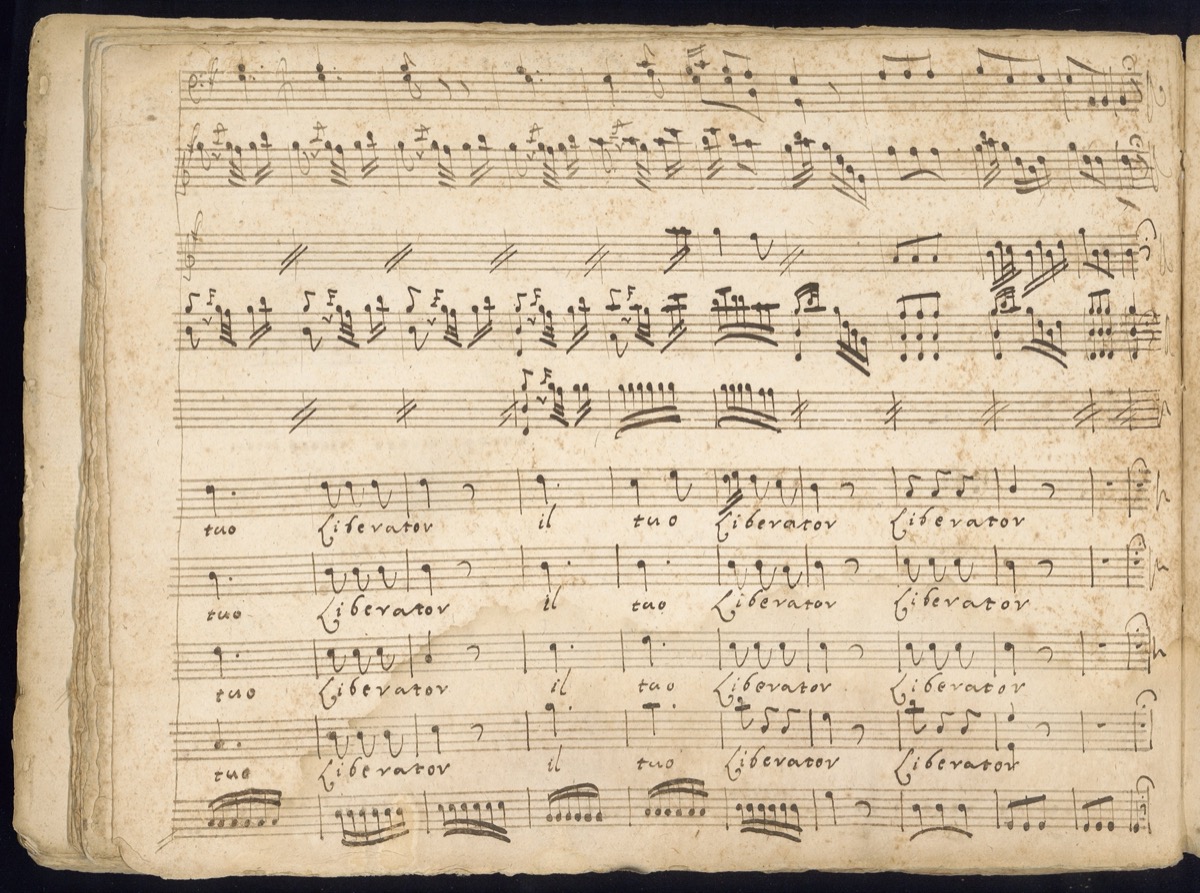 tuo Liberator il tuo Liberator Liberator
tuo Liberator il tuo Liberator Liberator
tuo Liberator il tuo Liberator Liberator
tuo Liberator il tuo Liberator Liberator